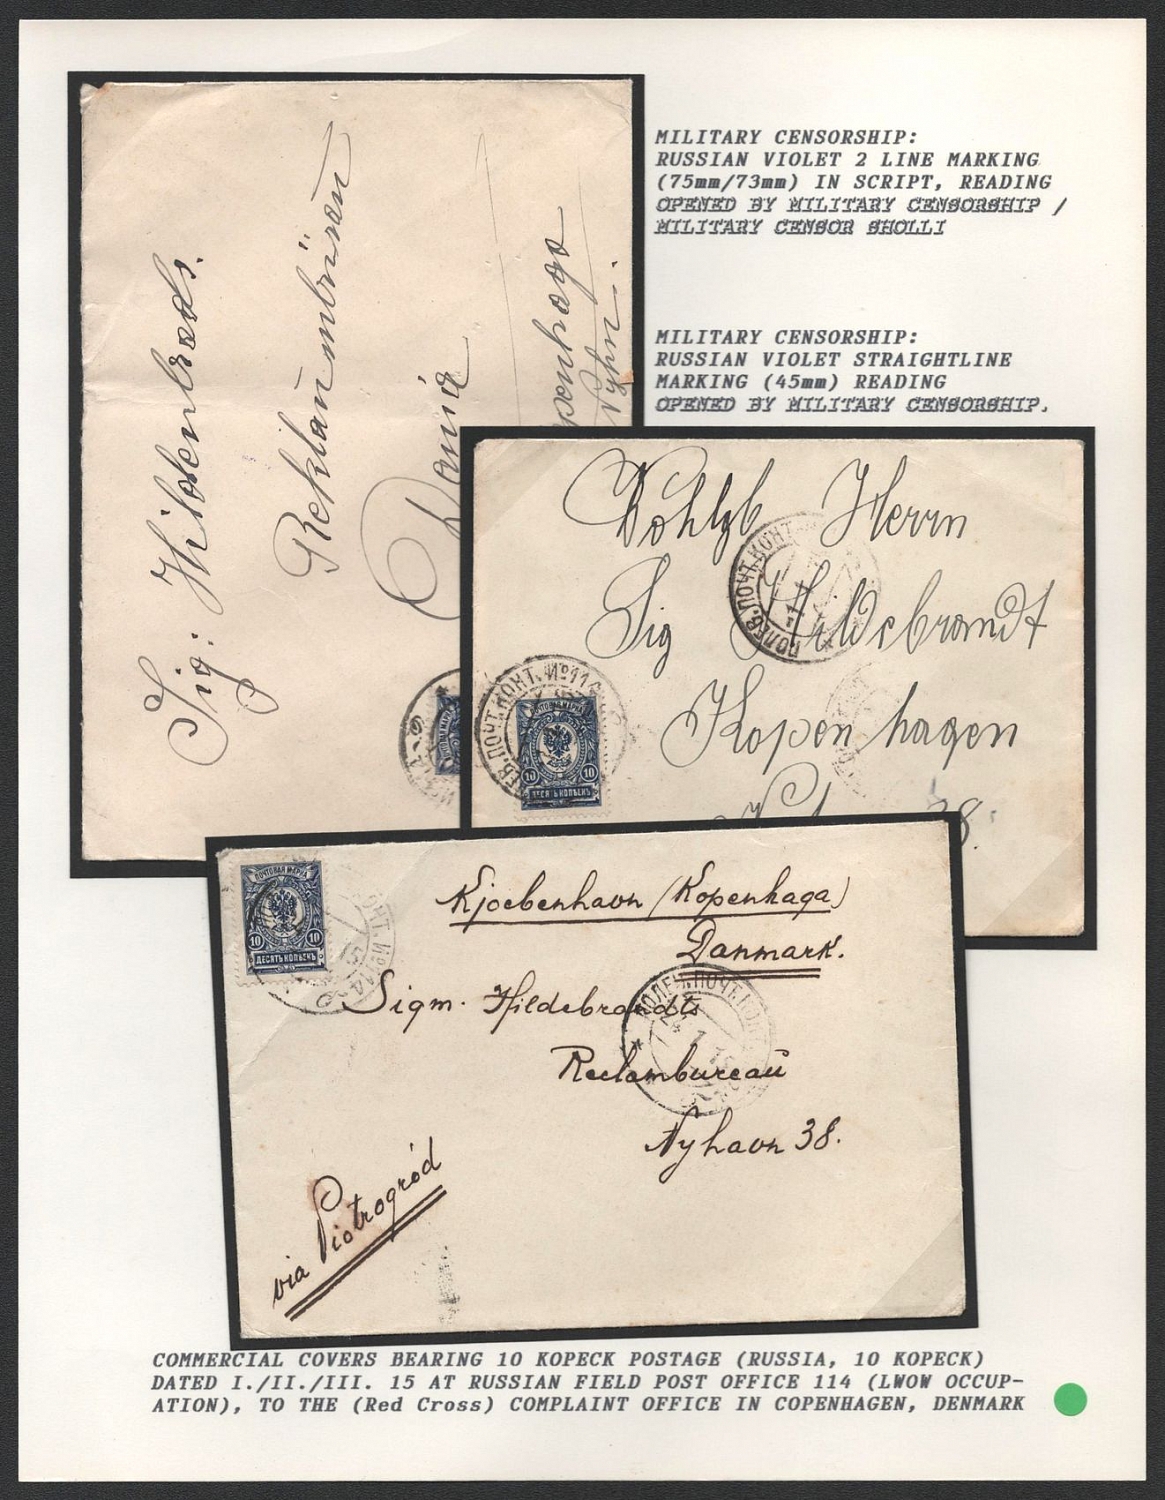 MILITARY CENSORSHIP:
RUSSIAN VIOLET 2 LINE MARKING
(75mm/73mm) IN SCRIPT, READING
OPENED BY MILITARY CENSORSHIP /
MILITARY CENSOR SHOLLI
MILITARY CENSORSHIP:
RUSSIAN VIOLET STRAIGHTLINE
MARKING (45mm) READING
OPENED BY MILITARY CENSORSHIP.
Sig: Hildenbrads.
Reklaumbürau
Dania
openhaga
Nyhn.
Wohlgb Herrn
Sig Hildebrandt
Kopenhagen
38.
ПОЛЕВ. ПОЧТ. КОНТ.
ЕВ. ПОЧТ. КОНТ. №114
ПОЧТОВАЯ МАРКА
10 10
ДЕСЯТЬ КОПѢЕКЪ
Kjoebenhavn (Kopenhaga)
Danmark.
Sigm. Hildebrandts
Reclambureaū
Nyhavn 38.
via Piotrogród
ПОЧТОВАЯ МАРКА
10 10
ДЕСЯТЬ КОПѢЕКЪ
ОНТ. №114
COMMERCIAL COVERS BEARING 10 KOPECK POSTAGE (RUSSIA, 10 KOPECK)
DATED I./II./III. 15 AT RUSSIAN FIELD POST OFFICE 114 (LWOW OCCUP-
ATION), TO THE (Red Cross) COMPLAINT OFFICE IN COPENHAGEN, DENMARK